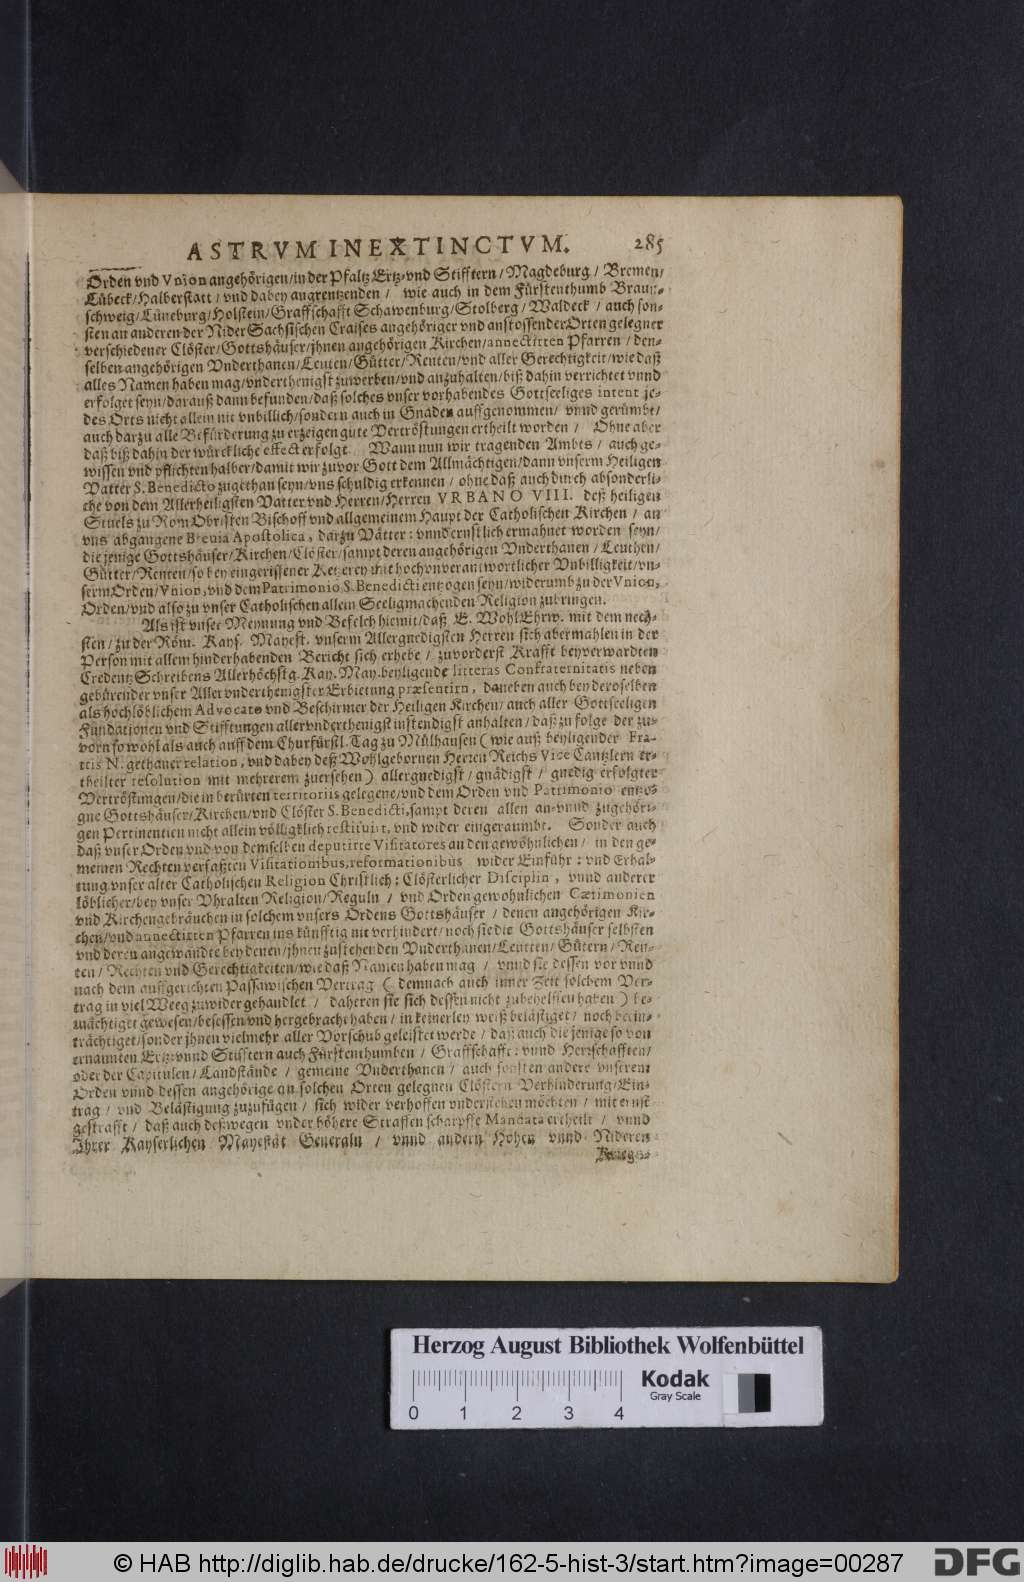 ASTRVM INEXTINCTVM. 285
Orden vnd Vnion angehörigen/in der Pfaltz Ertz- vnd Stifftern/ Magdeburg / Bremen/
Lübeck/Halberstatt / vnd dabey angrentzenden / wie auch in dem Fürstenthumb Braun-
schweig/Lüneburg/Holstein/Graffschafft Schawenburg/Stolberg/ Waldeck / auch son-
sten an anderen der Nider Sachsischen Craises angehöriger vnd anstossender Orten gelegner
verschiedener Clöster/Gottshäuser/jhnen angehörigen Kirchen/annectirten Pfarren / den-
selben angehörigen Vnderthanen/Leuten/Gütter/Renten/vnd aller Gerechtigkeit/wie daß
alles Namen haben mag/vnderthenigst zuwerben/vnd anzuhalten/biß dahin verrichtet vnnd
erfolget seyn/darauß dann befunden/daß solches vnser vorhabendes Gottseeliges intent je-
des Orts nicht allein nit vnbillich/sondern auch in Gnaden auffgenommen/ vnnd gerümbt/
auch darzu alle Befürderung zu erzeigen gute Vertröstungen ertheilt worden / Ohne aber
daß biß dahin der würckliche effect erfolgt. Wann nun wir tragenden Ambts / auch ge-
wissen vnd pflichten halber/damit wir zuvor Gott dem Allmächtigen/dann vnserm Heiligen
Vatter S. Benedicto zugethan seyn/vns schuldig erkennen / ohne daß auch durch absonderli-
che von dem Allerheiligsten Vatter vnd Herren/Herren VRBANO VIII. deß heiligen
Stuels zu Rom Obristen Bischoff vnd allgemeinem Haupt der Catholischen Kirchen / an
vns abgangene Breuia Apostolica, darzu Vätter: vnnd ernstlich ermahnet worden seyn/
die jenige Gottshäuser/Kirchen/Clöster/sampt deren angehörigen Vnderthanen / Leuthen/
Gütter/Renten/so bey eingerissener Ketzerey mit hochonverantwortlicher Vnbilligkeit/vn-
serm Orden/Vnion, vnd dem Patrimonio S. Benedicti entzogen seyn/widerumb zu der Vnion,
Orden/vnd also zu vnser Catholischen allein Seeligmachenden Religion zubringen.
Als ist vnser Meynung vnd Befelch hiemit/daß E. WohlEhrw. mit dem nech-
sten/zu der Röm. Kays. Mayest. vnserm Allergnedigsten Herren sich abermahlen in der
Person mit allem hinderhabenden Bericht sich erhebe / zuvorderst Krafft beyverwardten
Credentz Schreibens Allerhöchstg. Kay. May. beyligende litteras Confraternitatis neben
gebürender vnser Aller vnderthenigster Erbietung præsentirn, daneben auch bey deroselben
als hochlöblichem Advocato vnd Beschirmer der Heiligen Kirchen/auch aller Gottseeligen
Fundationen vnd Stifftungen allervnderthenigst instendigst anhalten / daß zu folge der zu-
vorn so wohl als auch auff dem Churfürstl. Tag zu Mülhausen (wie auß beyligender Fra-
tris N. gethaner relation, vnd dabey deß Wohlgebornen Herren Reichs Vice Cantzlern er-
theilter resolution mit mehrerem zuersehen) allergnedigst / gnädigst / gnedig erfolgter
Vertröstungen/die in berürten territoriis gelegene/vnd dem Orden vnd Patrimonio entzo-
gne Gottshäuser/Kirchen/vnd Clöster S. Benedicti, sampt deren allen an-vnnd zugehöri-
gen Pertinentien nicht allein völligklich restituirt, vnd wider eingeraumbt. Sonder auch
daß vnser Orden vnd von demselben deputirte Visitatores an den gewöhnlichen / in den ge-
meinen Rechten verfaßten Visitationibus, reformationibus wider Einführ: vnd Erhal-
tung vnser alter Catholischen Religion Christlich: Clösterlicher Disciplin, vnnd anderer
löblicher/bey vnser Vhralten Religion/Reguln / vnd Orden gewohnlichen Cærimonien
vnd Kirchengebräuchen in solchem vnsers Ordens Gottshäuser / denen angehörigen Kir-
chen/vnd annectirten Pfarren ins künfftig nit verhindert/noch sie die Gottshäuser selbsten
vnd deren angewandte bey denen/jhnen zustehenden Vnderthanen/Leutten/Gütern/Ren-
ten / Rechten vnd Gerechtigkeiten/wie daß Namen haben mag / vnnd sie dessen vor vnnd
nach dem auffgerichten Passawischen Vertrag (demnach auch inner Zeit solchem Ver-
trag in viel Weeg zuwider gehandlet / daheren sie sich dessen nicht zubehelffen haben) be-
mächtiget gewesen/besessen vnd hergebracht haben/in keinerley weiß belästiget / noch beein-
trächtiget/sonder jhnen vielmehr aller Vorschub geleistet werde / daß auch die jenige so von
ernannten Ertz: vnnd Stifftern auch Fürstenthumben / Graffschafft: vnnd Herrschafften/
oder der Capitulen/Landstände / gemeine Vnderthanen / auch sonsten andere vnserem
Orden vnnd dessen angehörige an solchen Orten gelegnen Clöstern Verhinderung/Ein-
trag / vnd Belästigung zuzufügen / sich wider verhoffen vnderstehen möchten / mit ernst
gestrafft / daß auch deßwegen vnder höhere Straffen scharpffe Mandata ertheilt / vnnd
Ihrer Kayserlichen Mayestät Generaln / vnnd andern Hohen vnnd Nideren
Kriegs-
Herzog August Bibliothek Wolfenbüttel
Kodak
Gray Scale
0 1 2 3 4
© HAB http://diglib.hab.de/drucke/162-5-hist-3/start.htm?image=00287
DFG